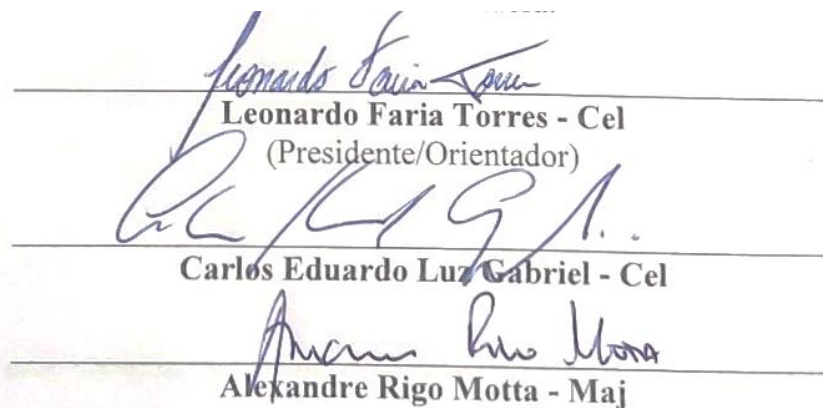 Leonardo Faria Torres
Leonardo Faria Torres - Cel
(Presidente/Orientador)
Carlos Eduardo Luz Gabriel - Cel
Rigo Motta
Alexandre Rigo Motta - Maj